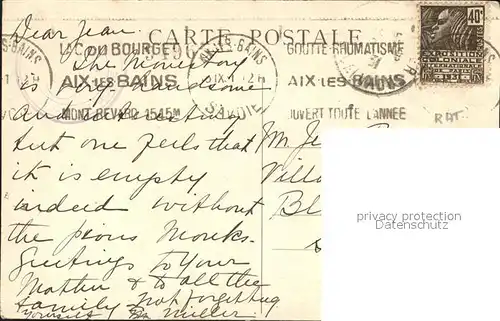 CARTE POSTALE
Dear Jean
LAC DU BOURGET
AIX LES BAINS
MONT REVARD 1545M
AIX-LES-BAINS
SAVOIE
GOUTTE-RHUMATISME
AIX LES BAINS
OUVERT TOUTE L'ANNEE
40c
EXPOSITION
COLONIALE
INTERNATIONALE
PARIS 1931
The Monastery
is very handsome
and interesting
but one feels that
it is empty
indeed without
the pious Monks.
Greetings to your
Mother & to all the
family not forgetting
yourself
Miller
M. Je
Villa
Bl
privacy protection
Datenschutz